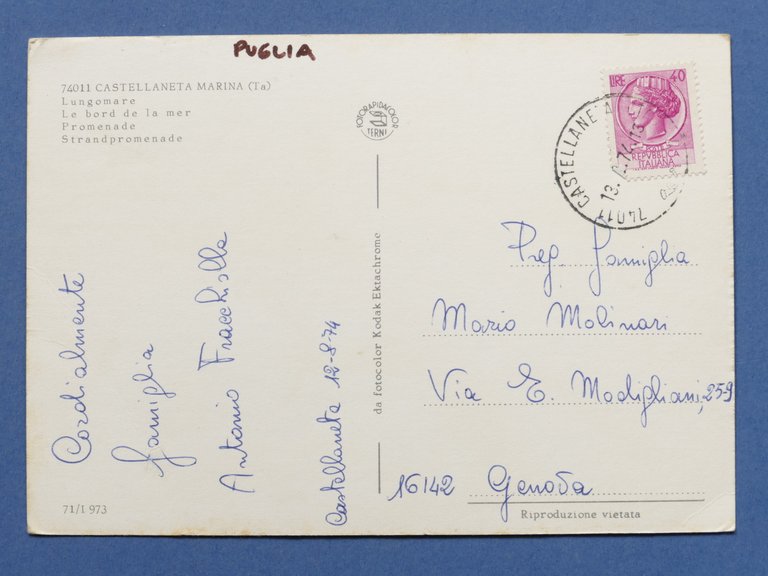 PUGLIA
74011 CASTELLANETA MARINA (Ta)
Lungomare
Le bord de la mer
Promenade
Strandpromenade
FOTORAPIDACOLOR
TERNI
LIRE 40
REPVBBLICA
ITALIANA
74011 CASTELLANETA
Cordialmente
famiglia
Antonio Fracchiolla
Castellaneta 12-8-74
da fotocolor Kodak Ektachrome
Preg. famiglia
Mario Molinari
Via E. Modigliani, 25-9
16142 Genova
71/I 973
Riproduzione vietata